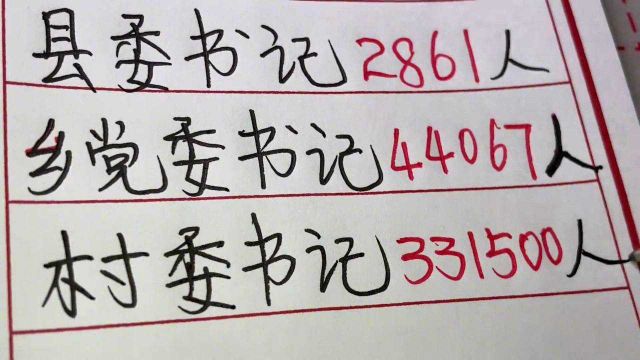 县委书记2861人
乡党委书记44067人
村委书记331500人